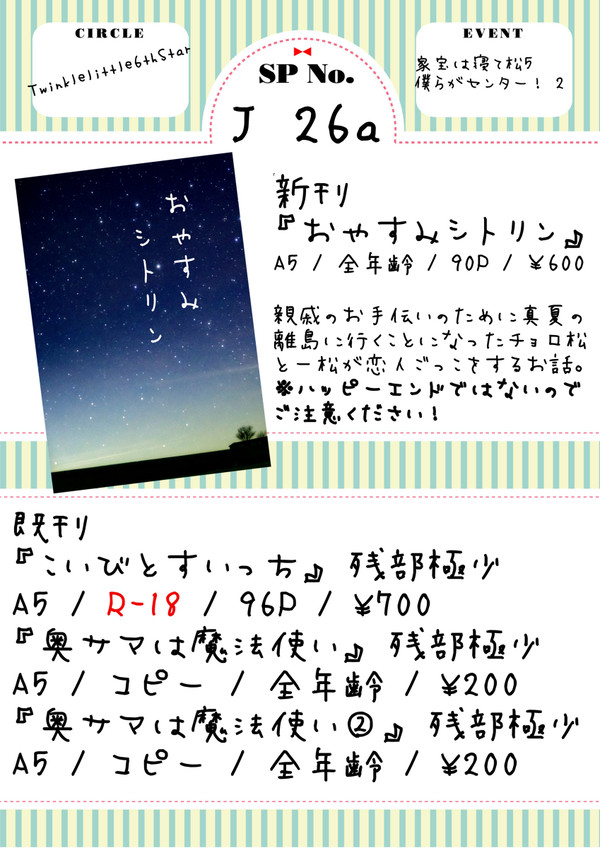 CIRCLE
Twinklelittle6thStar
EVENT
家宝は寝て松5
僕らがセンター! 2
SP No.
J 26a
おやすみ
シトリン
新刊
『おやすみシトリン』
A5 / 全年齢 / 90P / ¥600
親戚のお手伝いのために真夏の
離島に行くことになったチョロ松
と一松が恋人ごっこをするお話。
※ハッピーエンドではないので
ご注意ください!
既刊
『こいびとすいっち』 残部極少
A5 / R-18 / 96P / ¥700
『奥サマは魔法使い』 残部極少
A5 / コピー / 全年齢 / ¥200
『奥サマは魔法使い②』 残部極少
A5 / コピー / 全年齢 / ¥200